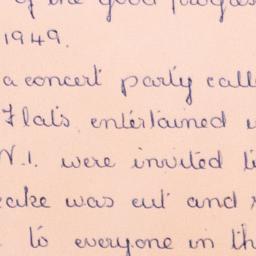 of the good progres
1949.
a concert party call
Flats, entertained
W.I. were invited t
cake was cut and
to everyone in th